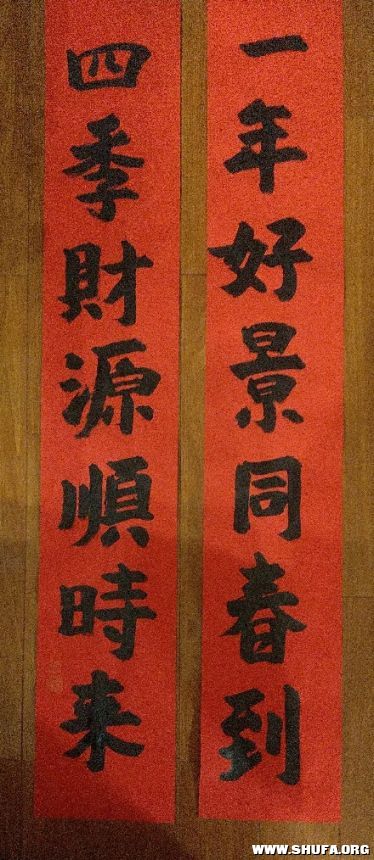 一年好景同春到
四季財源順時来
WWW.SHUFA.ORG